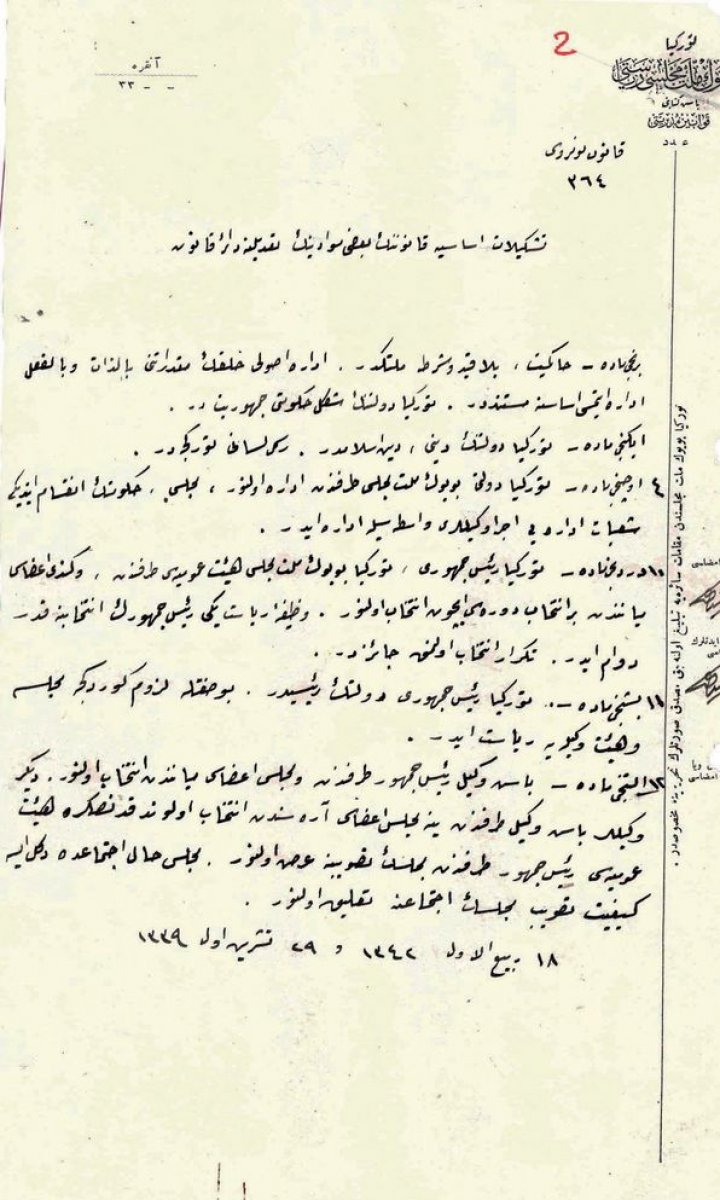 2
توركيا
بيوك ملت مجلسى رياستى
باش كتابتى
قوانين مديريتى
عدد
آنقره
٣٣ - -
قانون نومروسى
٣٦٤
تشكيلات اساسيه قانوننك بعض موادينك تعديلنه دائر قانون
برنجى ماده – حاكميت ، بلا قيد وشرط ملتكدر . اداره اصولى خلقك مقدراتنى بالذات وبالفعل
اداره ايتمسى اساسنه مستنددر . توركيا دولتنك شكل حكومتى جمهوريت در .
ايكنجى ماده – توركيا دولتنك دينى ، دين اسلامدر . رسمى لسانى توركجه در .
٤ اوچنجى ماده – توركيا دولتى بويوك ملت مجلسى طرفندن اداره اولنور ، مجلس ، حكومتك انقسام ايتديكى
شعبات اداره يى اجرا وكيللرى واسطه سيله اداره ايدر .
١٠ دردنجى ماده – توركيا رئيس جمهورى ، توركيا بويوك ملت مجلسى هيئت عموميه سى طرفندن ، وكندى اعضاسى
مياننذن بر انتخاب دوره سى ايچون انتخاب اولنور . وظيفه رياست يكى رئيس جمهورك انتخابنه قدر
دوام ايدر . تكرار انتخاب اولنمق جائزدر .
١١ بشنجى ماده – توركيا رئيس جمهورى دولتك رئيسيدر . بو صفتله لزوم كوردكجه مجلسه
وهيئت وكيليه يه رياست ايدر .
١٢ آلتنجى ماده – باش وكيل رئيس جمهور طرفندن ومجلس اعضاسى مياننذن انتخاب اولنور . ديكر
وكيللر باش وكيل طرفندن ينه مجلس اعضاسى آره سندن انتخاب اولوندقدنصكره هيئت
عموميه سى رئيس جمهور طرفندن مجلسك تصويبنه عرض اولنور . مجلس حال اجتماعده دكل ايسه
كيفيت تصويب مجلسك اجتماعنه تعليق اولنور .
١٨ ربيع الاول ١٣٤٢ و ٢٩ تشرين اول ١٣٣٩
توركيا بويوك ملت مجلسندن مقامات سائره يه تبليغ اوله جق مصدق صورتلرك تحريرينه مخصوصدر .
امضاسى
ايدنلرك
امضاسى